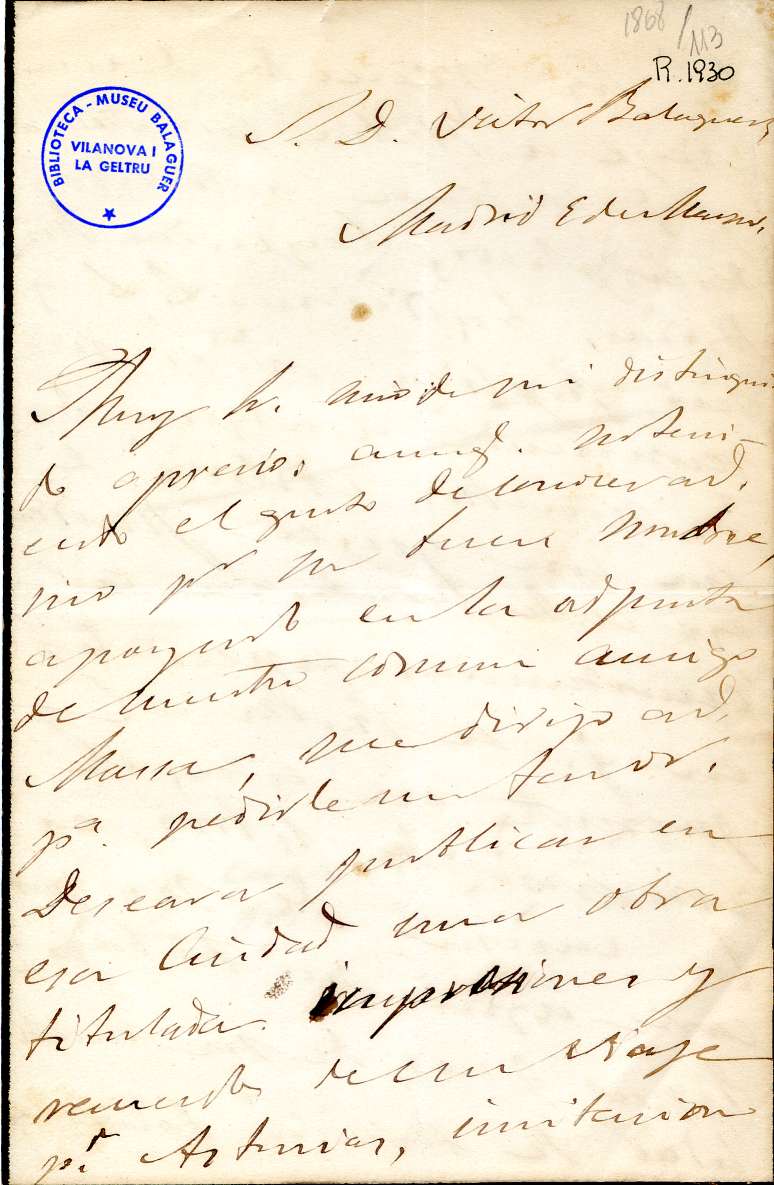 1868/113
R.1930
BIBLIOTECA - MUSEU BALAGUER
VILANOVA I
LA GELTRU
S. D. Victor Balaguer
Madrid 8 de Marzo.
Muy Sr. mio de mi distingui-
do aprecio, aunq. no teni-
endo el gusto de conocer a V.
sino pr su buen nombre,
apoyado en la adjunta
de nuestro comun amigo
Massa, me dirijo a V.
pa. pedirle un favor.
Deseara publicar en
esa Ciudad una obra
titulada impresiones y
recuerdos de un viaje
pr Asturias, imitacion